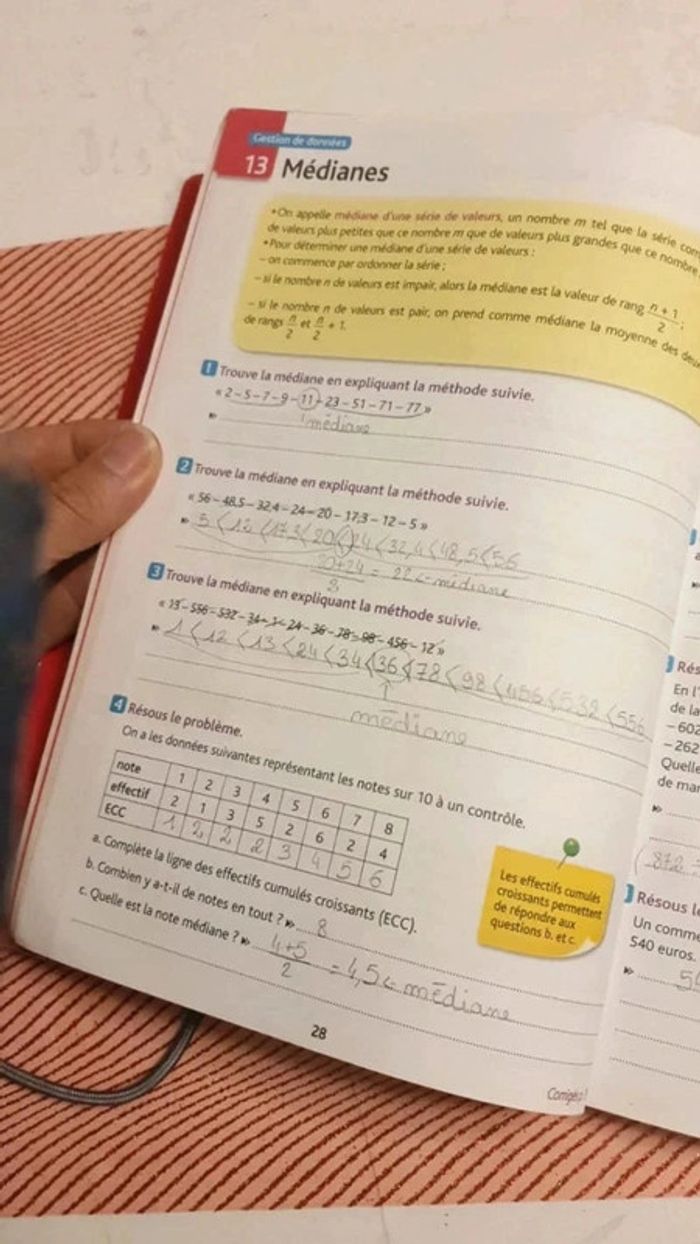 Gestion de données
13 Médianes
•On appelle médiane d'une série de valeurs, un nombre m tel que la série
de valeurs plus petites que ce nombre m que de valeurs plus grandes que ce nombre
•Pour déterminer une médiane d'une série de valeurs :
– on commence par ordonner la série ;
– si le nombre n de valeurs est impair, alors la médiane est la valeur de rang n + 1 / 2 ;
– si le nombre n de valeurs est pair, on prend comme médiane la moyenne des
de rangs n/2 et n/2 + 1.
1 Trouve la médiane en expliquant la méthode suivie.
« 2 – 5 – 7 – 9 – 11 – 23 – 51 – 71 – 77 »
médiane
2 Trouve la médiane en expliquant la méthode suivie.
« 56 – 48,5 – 32,4 – 24 – 20 – 17,3 – 12 – 5 »
5 < 12 < 17,3 < 20 < 24 < 32,4 < 48,5 < 56
20+24 / 2 = 22 <- médiane
3 Trouve la médiane en expliquant la méthode suivie.
« 13 – 556 – 532 – 34 – 1 – 24 – 36 – 78 – 98 – 456 – 12 »
1 < 12 < 13 < 24 < 34 < 36 < 78 < 98 < 456 < 532 < 556
médiane
4 Résous le problème.
On a les données suivantes représentant les notes sur 10 à un contrôle.
note 1 2 3 4 5 6 7 8
effectif 2 1 3 5 2 6 2 4
ECC 1 2 2 2 3 4 5 6
a. Complète la ligne des effectifs cumulés croissants (ECC).
b. Combien y a-t-il de notes en tout ? 8
c. Quelle est la note médiane ? 4+5 / 2 = 4,5 <- médiane
Les effectifs cumulés
croissants permettent
de répondre aux
questions b. et c.
28
Corrigés
Rés
En l'
de la
– 602
– 262
Quelle
de mar
(-872 =
Résous le
Un comme
540 euros.